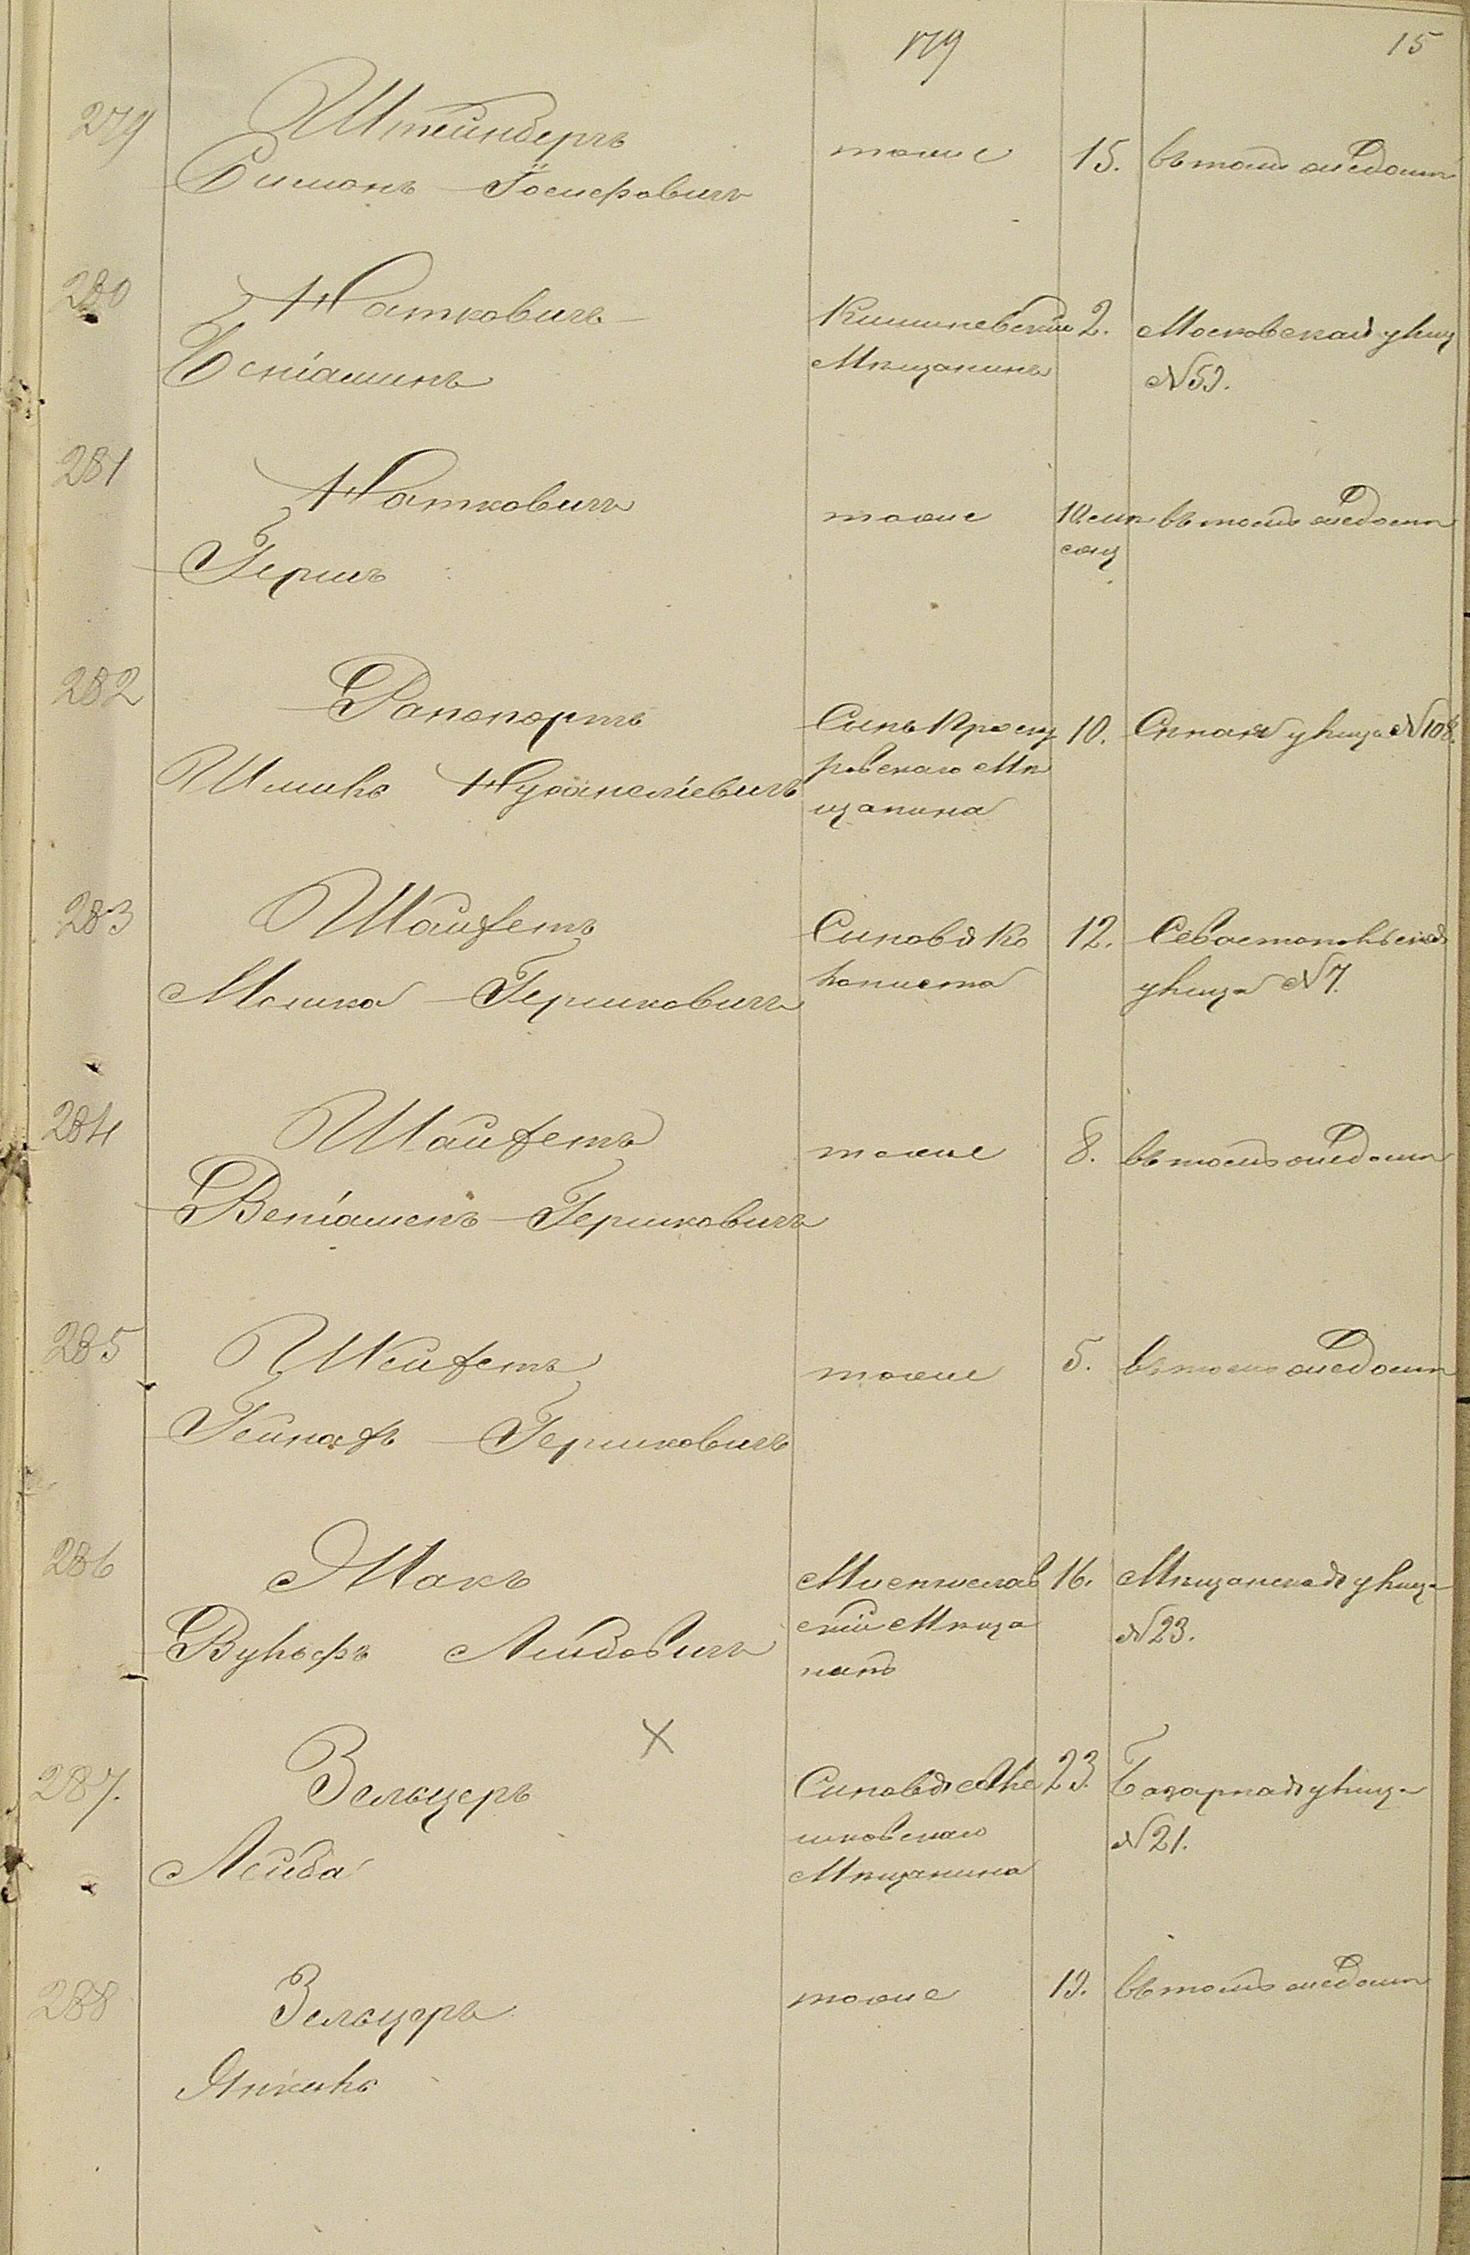 179
15
279
Штейнбергъ
Симонъ Іосифовичъ
тоже
15.
въ томъ же домѣ
280
Натковичъ
Беніаминъ
Кишиневскій
Мѣщанинъ
2.
Московская улиц
№ 59.
281
Натковичъ
Гершъ
тоже
10 мѣ
сяц
въ томъ же домѣ
282
Рапопортъ
Шмиль
Сынъ Проску
ровскаго Мѣ
щанина
10.
Сѣнная улица № 108.
283
Шайфетъ
Мошка Гершковичъ
Сыновья Ко
лониста
12.
Севастопольская
улица № 7.
284
Шайфетъ
Веніаменъ Гершковичъ
тоже
8.
въ томъ же домѣ
285
Шейфетъ
Гершковичъ
тоже
5.
въ томъ же домѣ
286
Макъ
Вульфъ Лейбовичъ
Мстиславс
скій Мѣща
нинъ
16.
Мѣщанская улица
№ 23.
287.
Зельцеръ
Лейба
Сыновья
Мѣщанина
23.
Базарная улица
№ 21.
288
Зельцеръ
Янкель
тоже
19.
въ томъ же домѣ